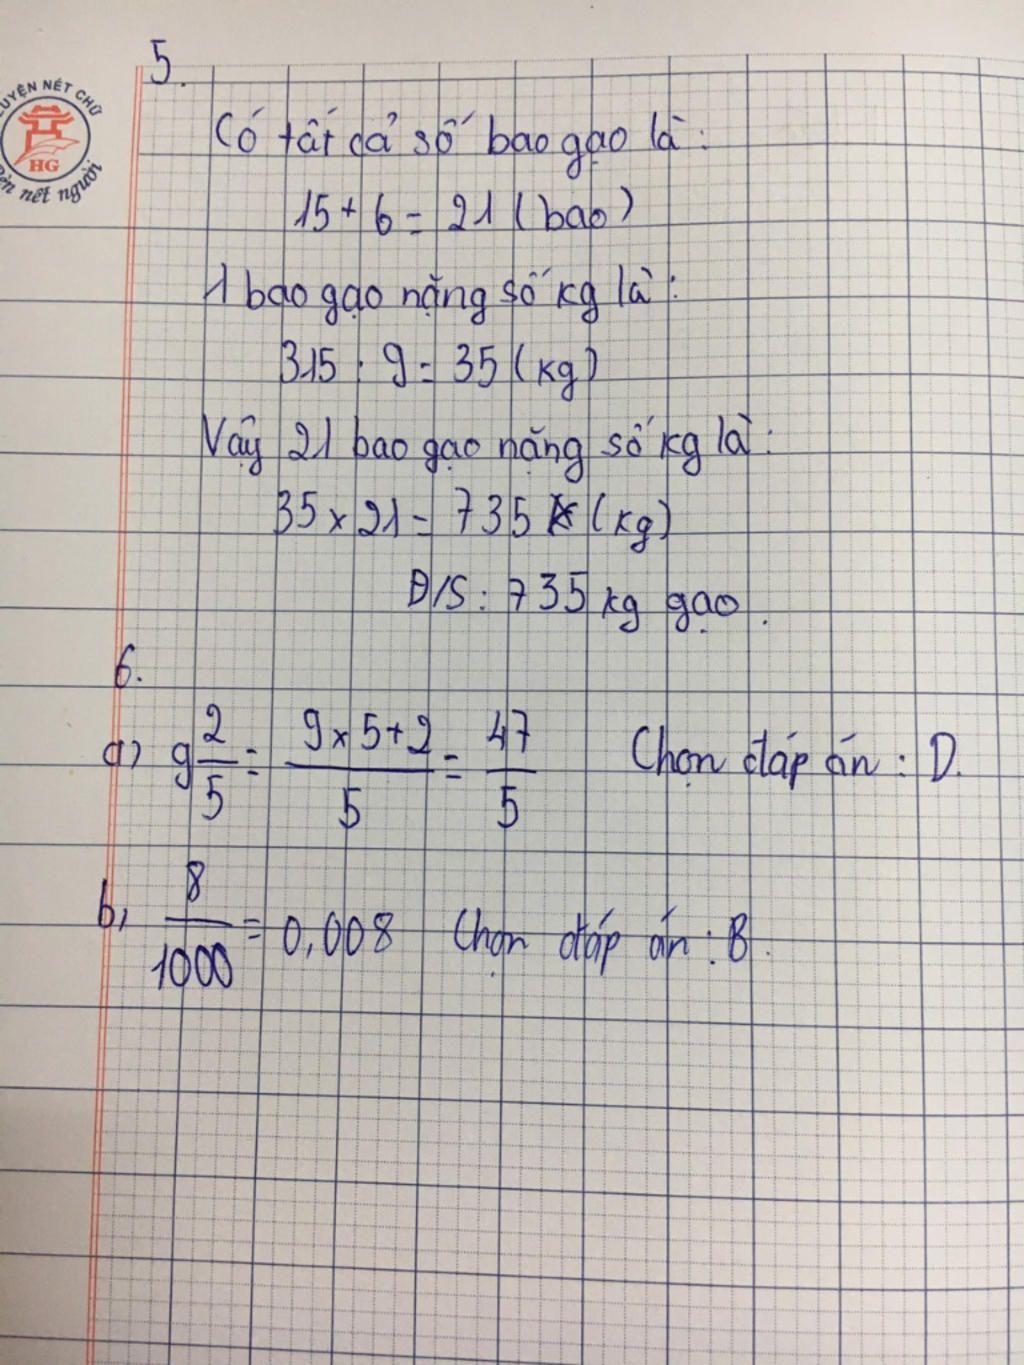 LUYỆN NÉT CHỮ
HG
nét người
5.
Có tất cả số bao gạo là:
15 + 6 = 21 (bao)
1 bao gạo nặng số kg là:
315 : 9 = 35 (kg)
Vậy 21 bao gạo nặng số kg là:
35 × 21 = 735 (kg)
Đ/S: 735 kg gạo.
6.
a) 9 2/5 = 9 × 5 + 2 / 5 = 47/5 Chọn đáp án: D.
b, 8/1000 = 0,008 Chọn đáp án: B.